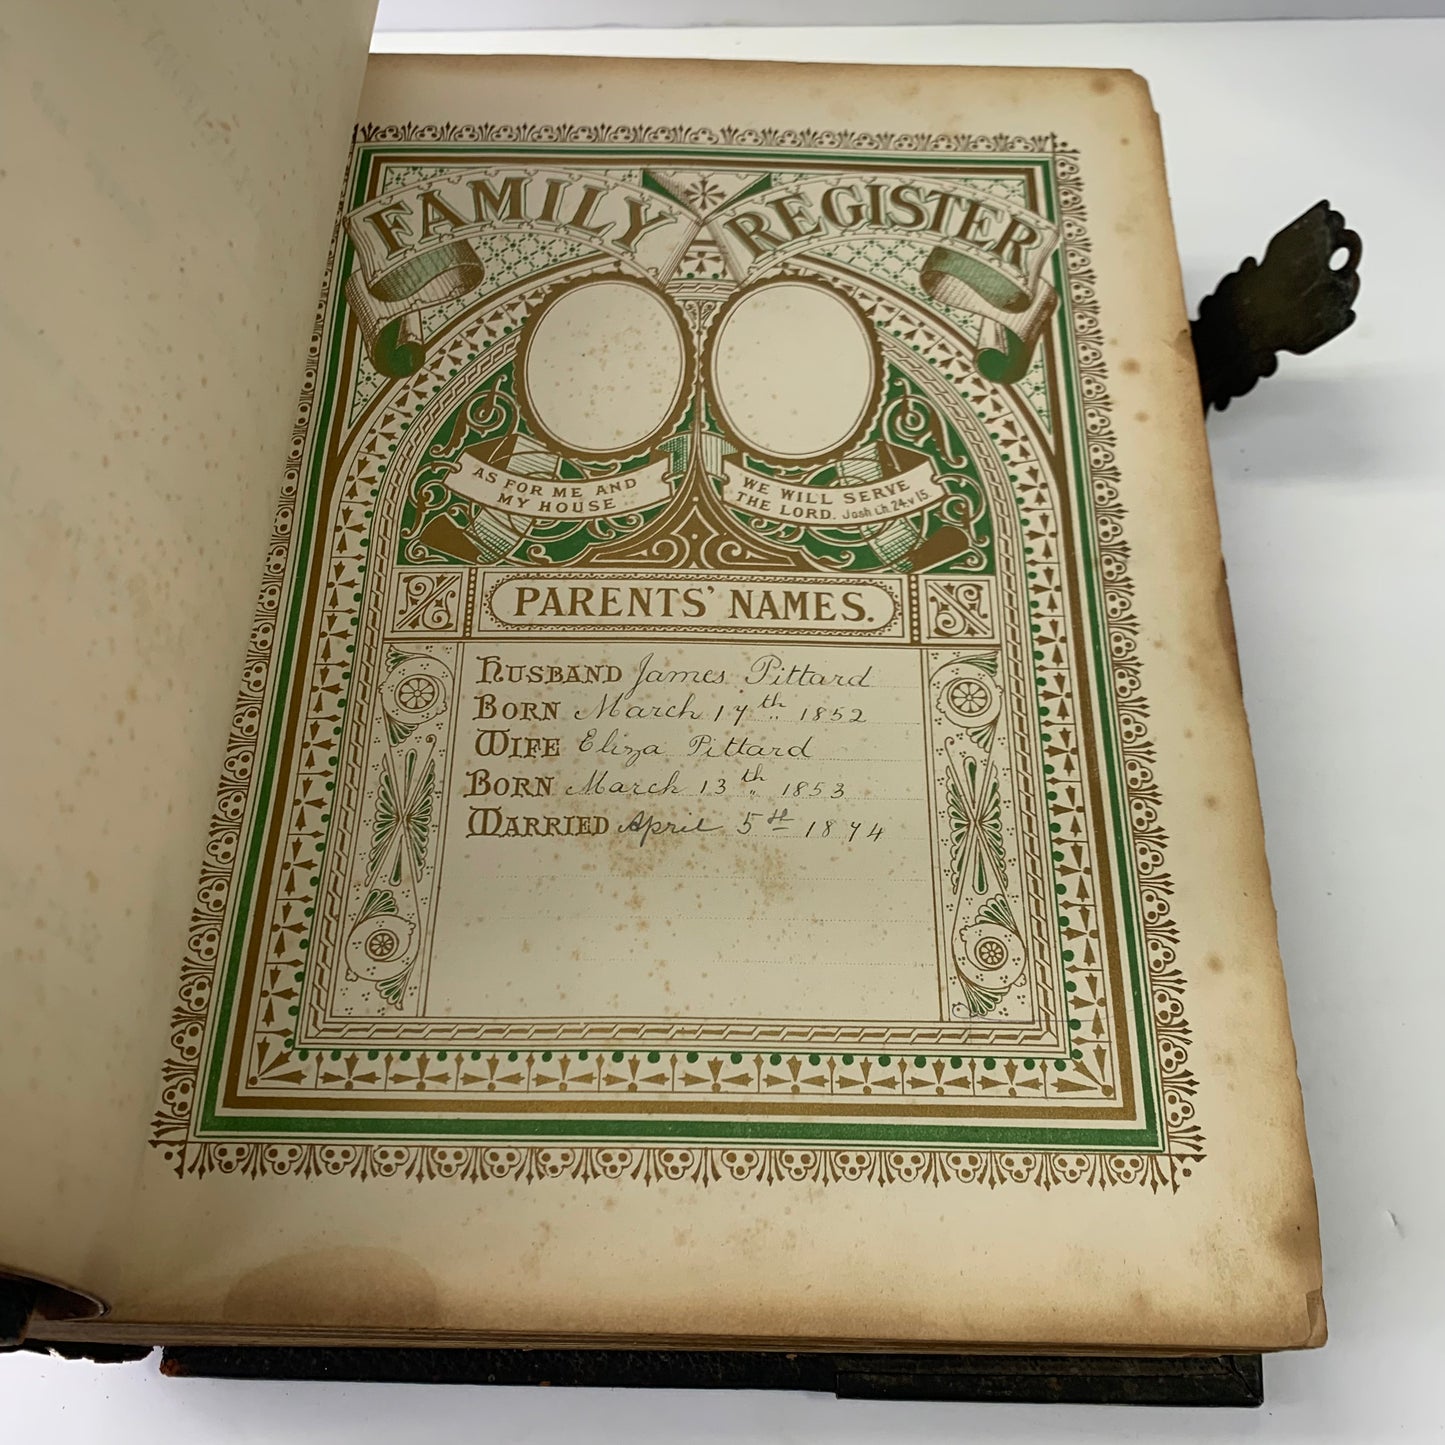 FAMILY REGISTER
AS FOR ME AND
MY HOUSE
WE WILL SERVE
THE LORD. Josh Ch. 24. v 15.
PARENTS' NAMES.
HUSBAND James Pittard
BORN March 17th 1852
WIFE Eliza Pittard
BORN March 13th 1853
MARRIED April 5th 1874